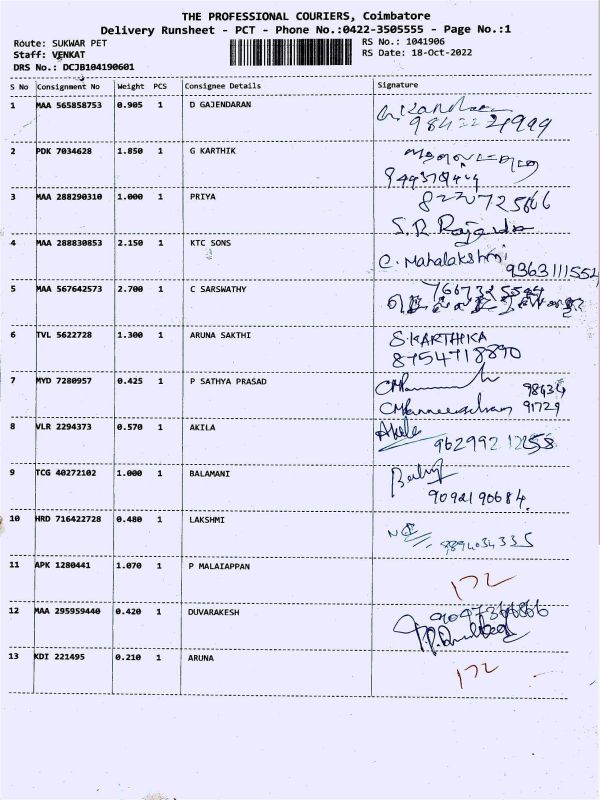 THE PROFESSIONAL COURIERS, Coimbatore
Delivery Runsheet - PCT - Phone No.:0422-3505555 - Page No.:1
Route: SUKWAR PET
RS No.: 1041906
Staff: VENKAT
RS Date: 18-Oct-2022
DRS No.: DCJB104190601
S No Consignment No Weight PCS Consignee Details Signature
1 MAA 565858753 0.905 1 D GAJENDARAN
9842221999
2 PDK 7034628 1.850 1 G KARTHIK
3 MAA 288290310 1.000 1 PRIYA
S.R
4 MAA 288830853 2.150 1 KTC SONS
C. Mahalakshmi
9363111554
5 MAA 567642573 2.700 1 C SARSWATHY
6 TVL 5622728 1.300 1 ARUNA SAKTHI
S.KARTHIKA
8754718890
7 MYD 7280957 0.425 1 P SATHYA PRASAD
98434
91729
8 VLR 2294373 0.570 1 AKILA
Akila
9 TCG 40272102 1.000 1 BALAMANI
9092190684.
10 HRD 716422728 0.480 1 LAKSHMI
9894034335
11 APK 1280441 1.070 1 P MALAIAPPAN
172
12 MAA 295959440 0.420 1 DUVARAKESH
13 KDI 221495 0.210 1 ARUNA
172